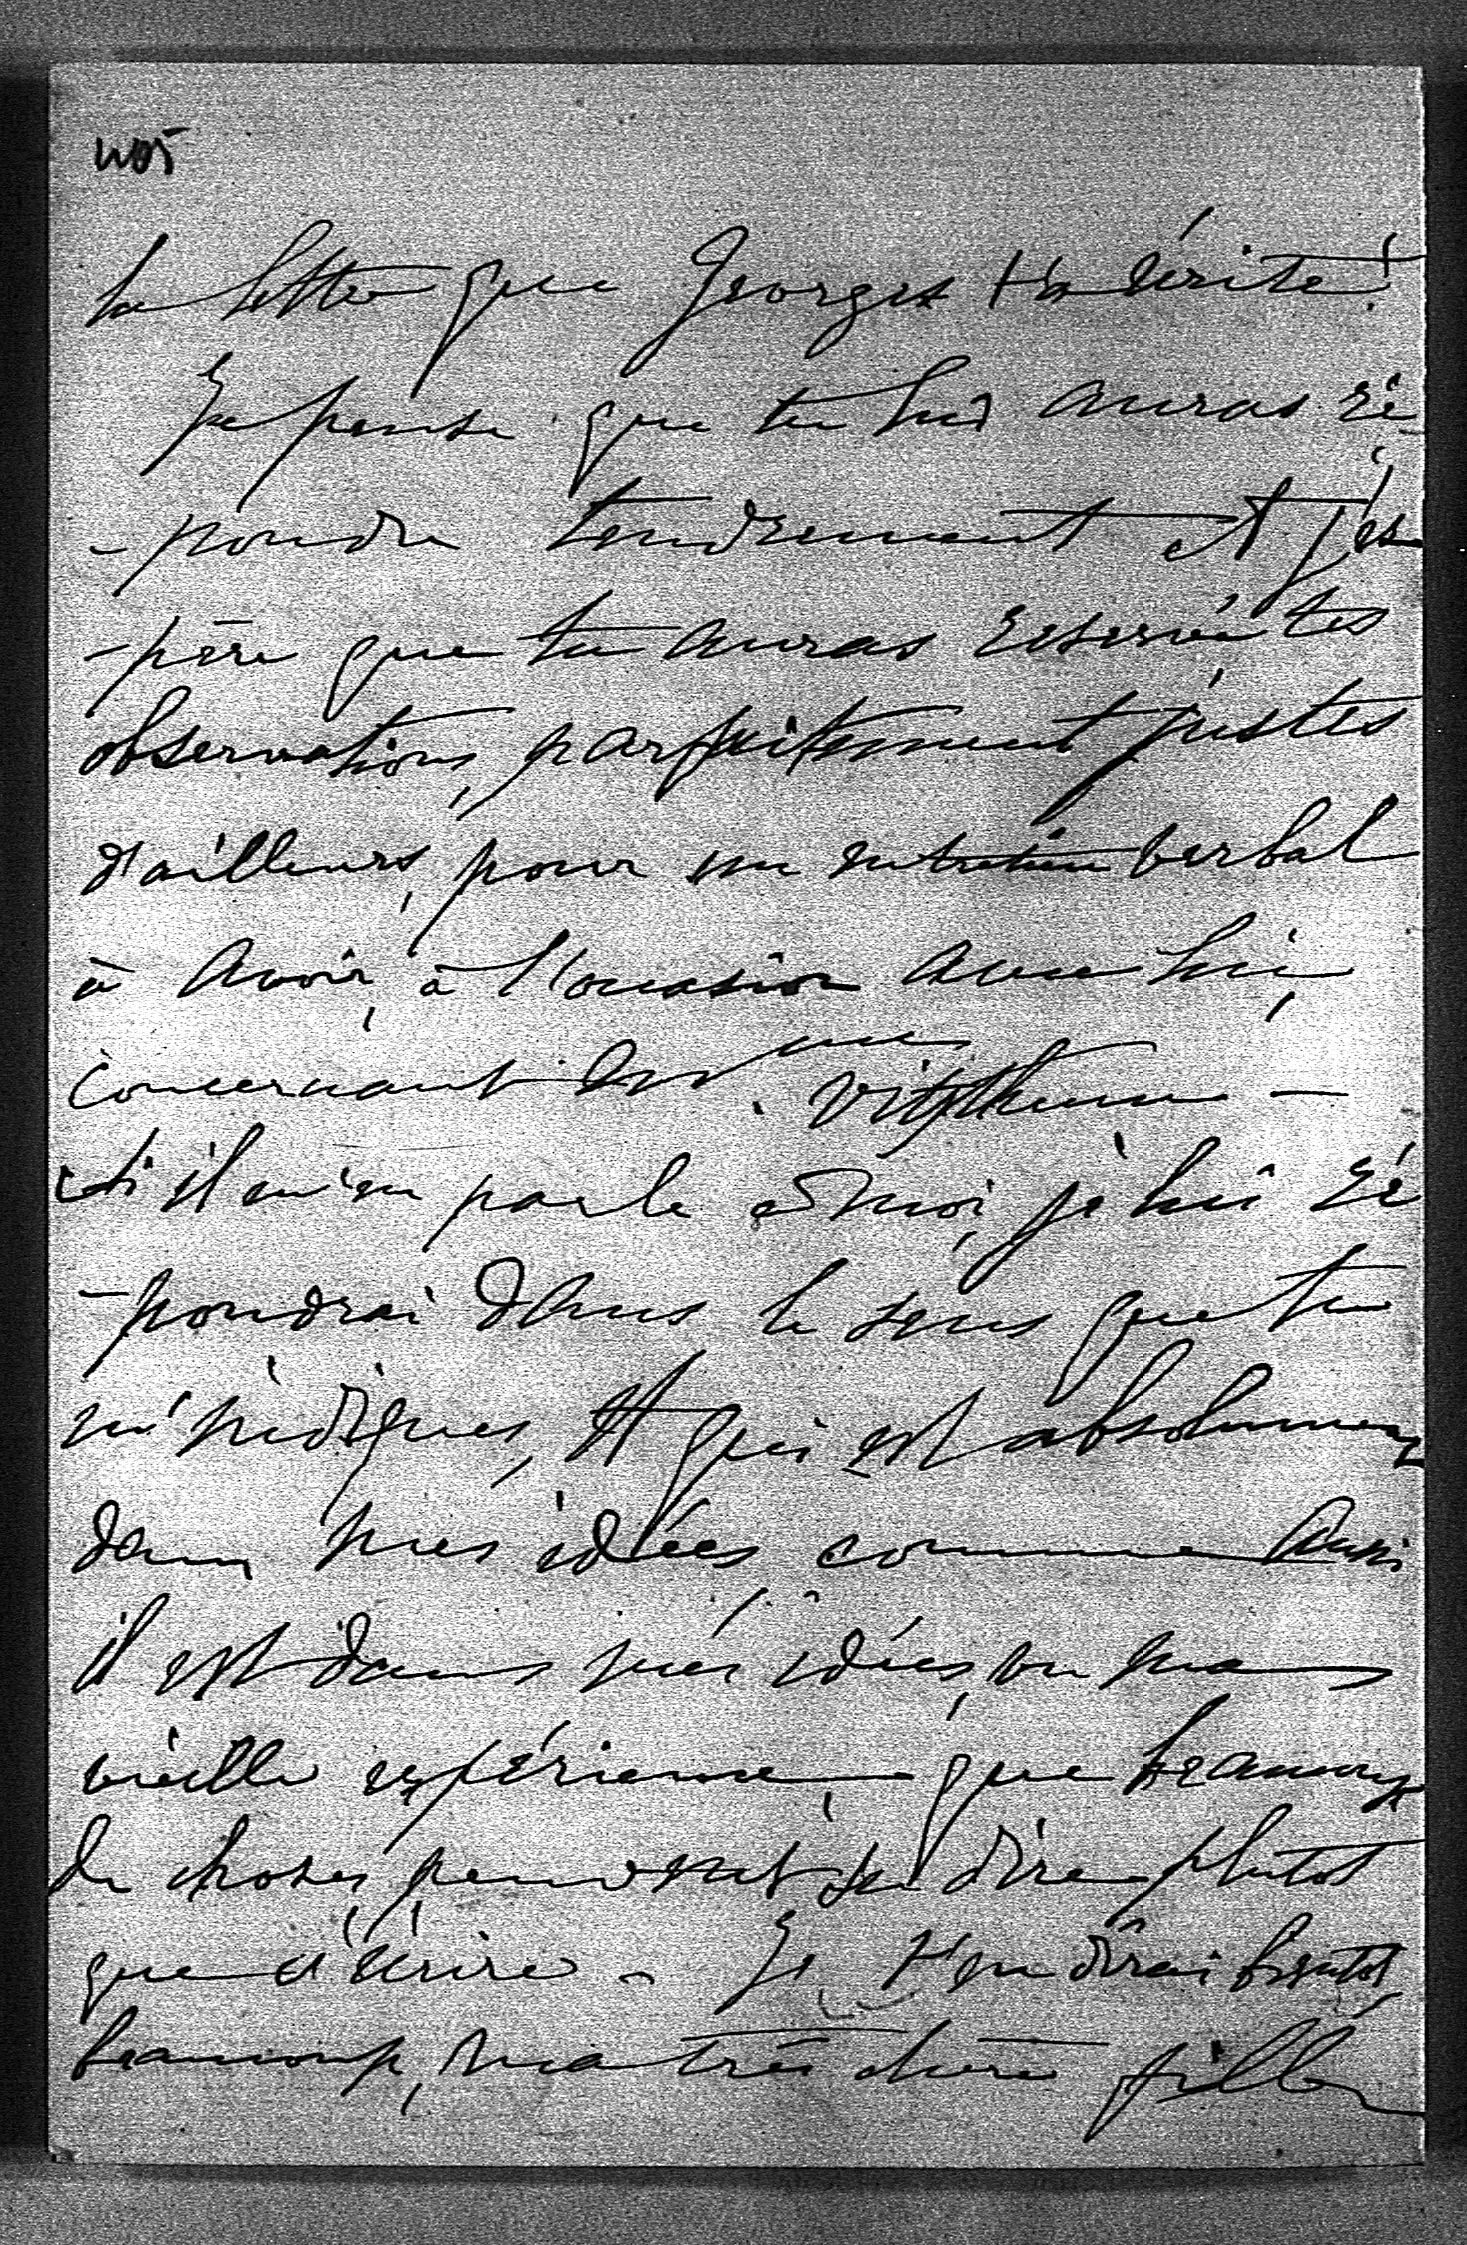 la lettre que Georges t'a écrite!
Je pense que tu lui auras ré
-pondu tendrement et j'es
-père que tu auras reservé tes
observations, parfaitement justes
d'ailleurs, pour un entretien verbal
à avoir, à l'occasion avec lui,
concernant les Vitzthum —
si il m'en parle à moi, je lui ré
-pondrai dans le sens que tu
m'indiques, et qui est absolument
dans mes idées, comme aussi
il est dans mes idées, vu ma
vieille expérience, que beaucoup
de choses peuvent se dire plutot
que s'écrire – Je t'en dirai bientot
beaucoup, ma très chère fille